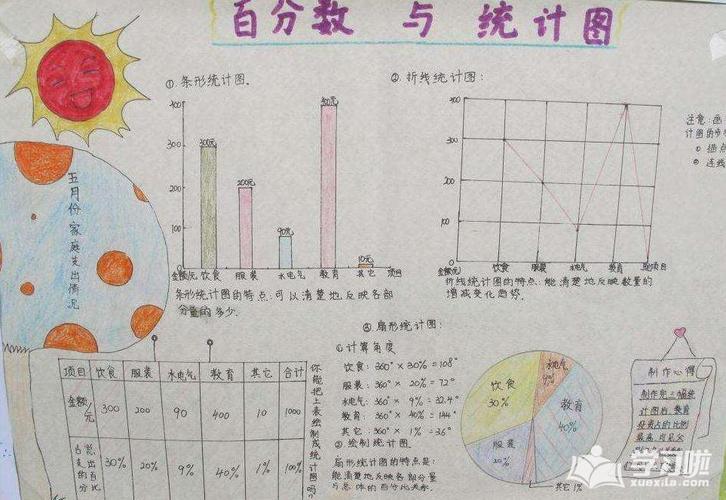 百分数 与 统计图
①条形统计图。
400
300
200
100
0
300元
200元
90元
400元
10元
金额/元 饮食 服装 水电气 教育 其它 项目
条形统计图的特点:可以清楚地反映各部
分量的多少.
②折线统计图:
400
300
200
100
0
金额/元 饮食 服装 水电气 教育 项目
折线统计图的特点:能清楚地反映数量的
增减变化趋势。
注意:画
计图的步
①描点
②连线
五月份家庭支出情况
项目 饮食 服装 水电气 教育 其它 合计
金额/元 300 200 90 400 10 1000
占总支出的百分比 30% 20% 9% 40% 1% 100%
你能把上表绘制成统计图吗?
③扇形统计图:
①计算角度
饮食:360°×30%=108°
服装:360°×20%=72°
水电气:360°×9%=32.4°
教育:360°×40%=144°
其它:360°×1%=3.6°
②绘制统计图.
扇形统计图的特点是:
能清楚地反映各部分量
与总体的百分比关系.
水电气
9%
饮食
30%
教育
40%
服装
20%
其它1%
制作心得
制作完三幅统
计图后,教育
投资占的比例
最高,可见父
学习啦
xuexila.com